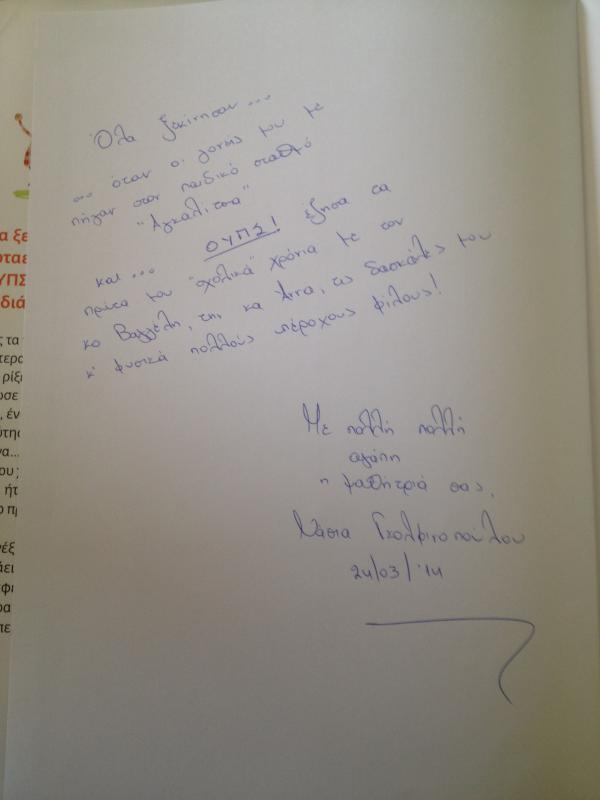 Όλα ξεκίνησαν...
... όταν οι γονείς μου με
πήγαν στον παιδικό σταθμό
"Αγκαλίτσα"
και... ΟΥΠΣ! έζησα τα
πρώτα μου "σχολικά" χρόνια με τον
κο Βαγγέλη, την κα Άννα, τις δασκάλες μου
κ' φυσικά πολλούς υπέροχους φίλους!
Με πολλή πολλή
αγάπη
η μαθήτριά σας,
Νάσια Γκολφινοπούλου
24/03/'14
α ξε
ΥΠΣ
διά
ς τα
τερα
ρίξι
, έν
ύτησ
να...
ου χ
ήτ
ο πρ
νέξ
άει